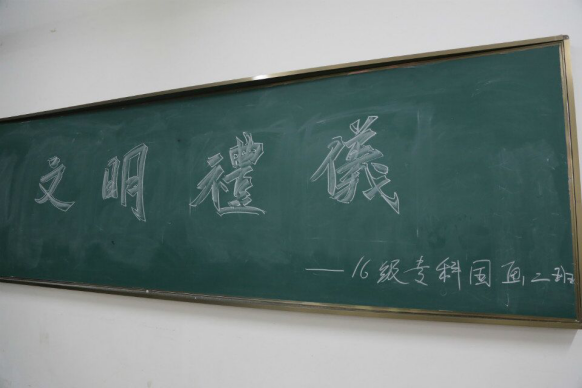 文明禮儀
——16级专科国画二班